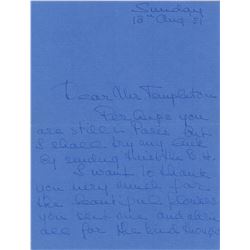 Sunday
18th Aug 21
Dear Mr Templeton
Perhaps you
are still in Paris but
I shall try my luck
By sending this to the B.H.
I want to thank
you very much for
the beautiful flowers
you sent me and
all for the kind